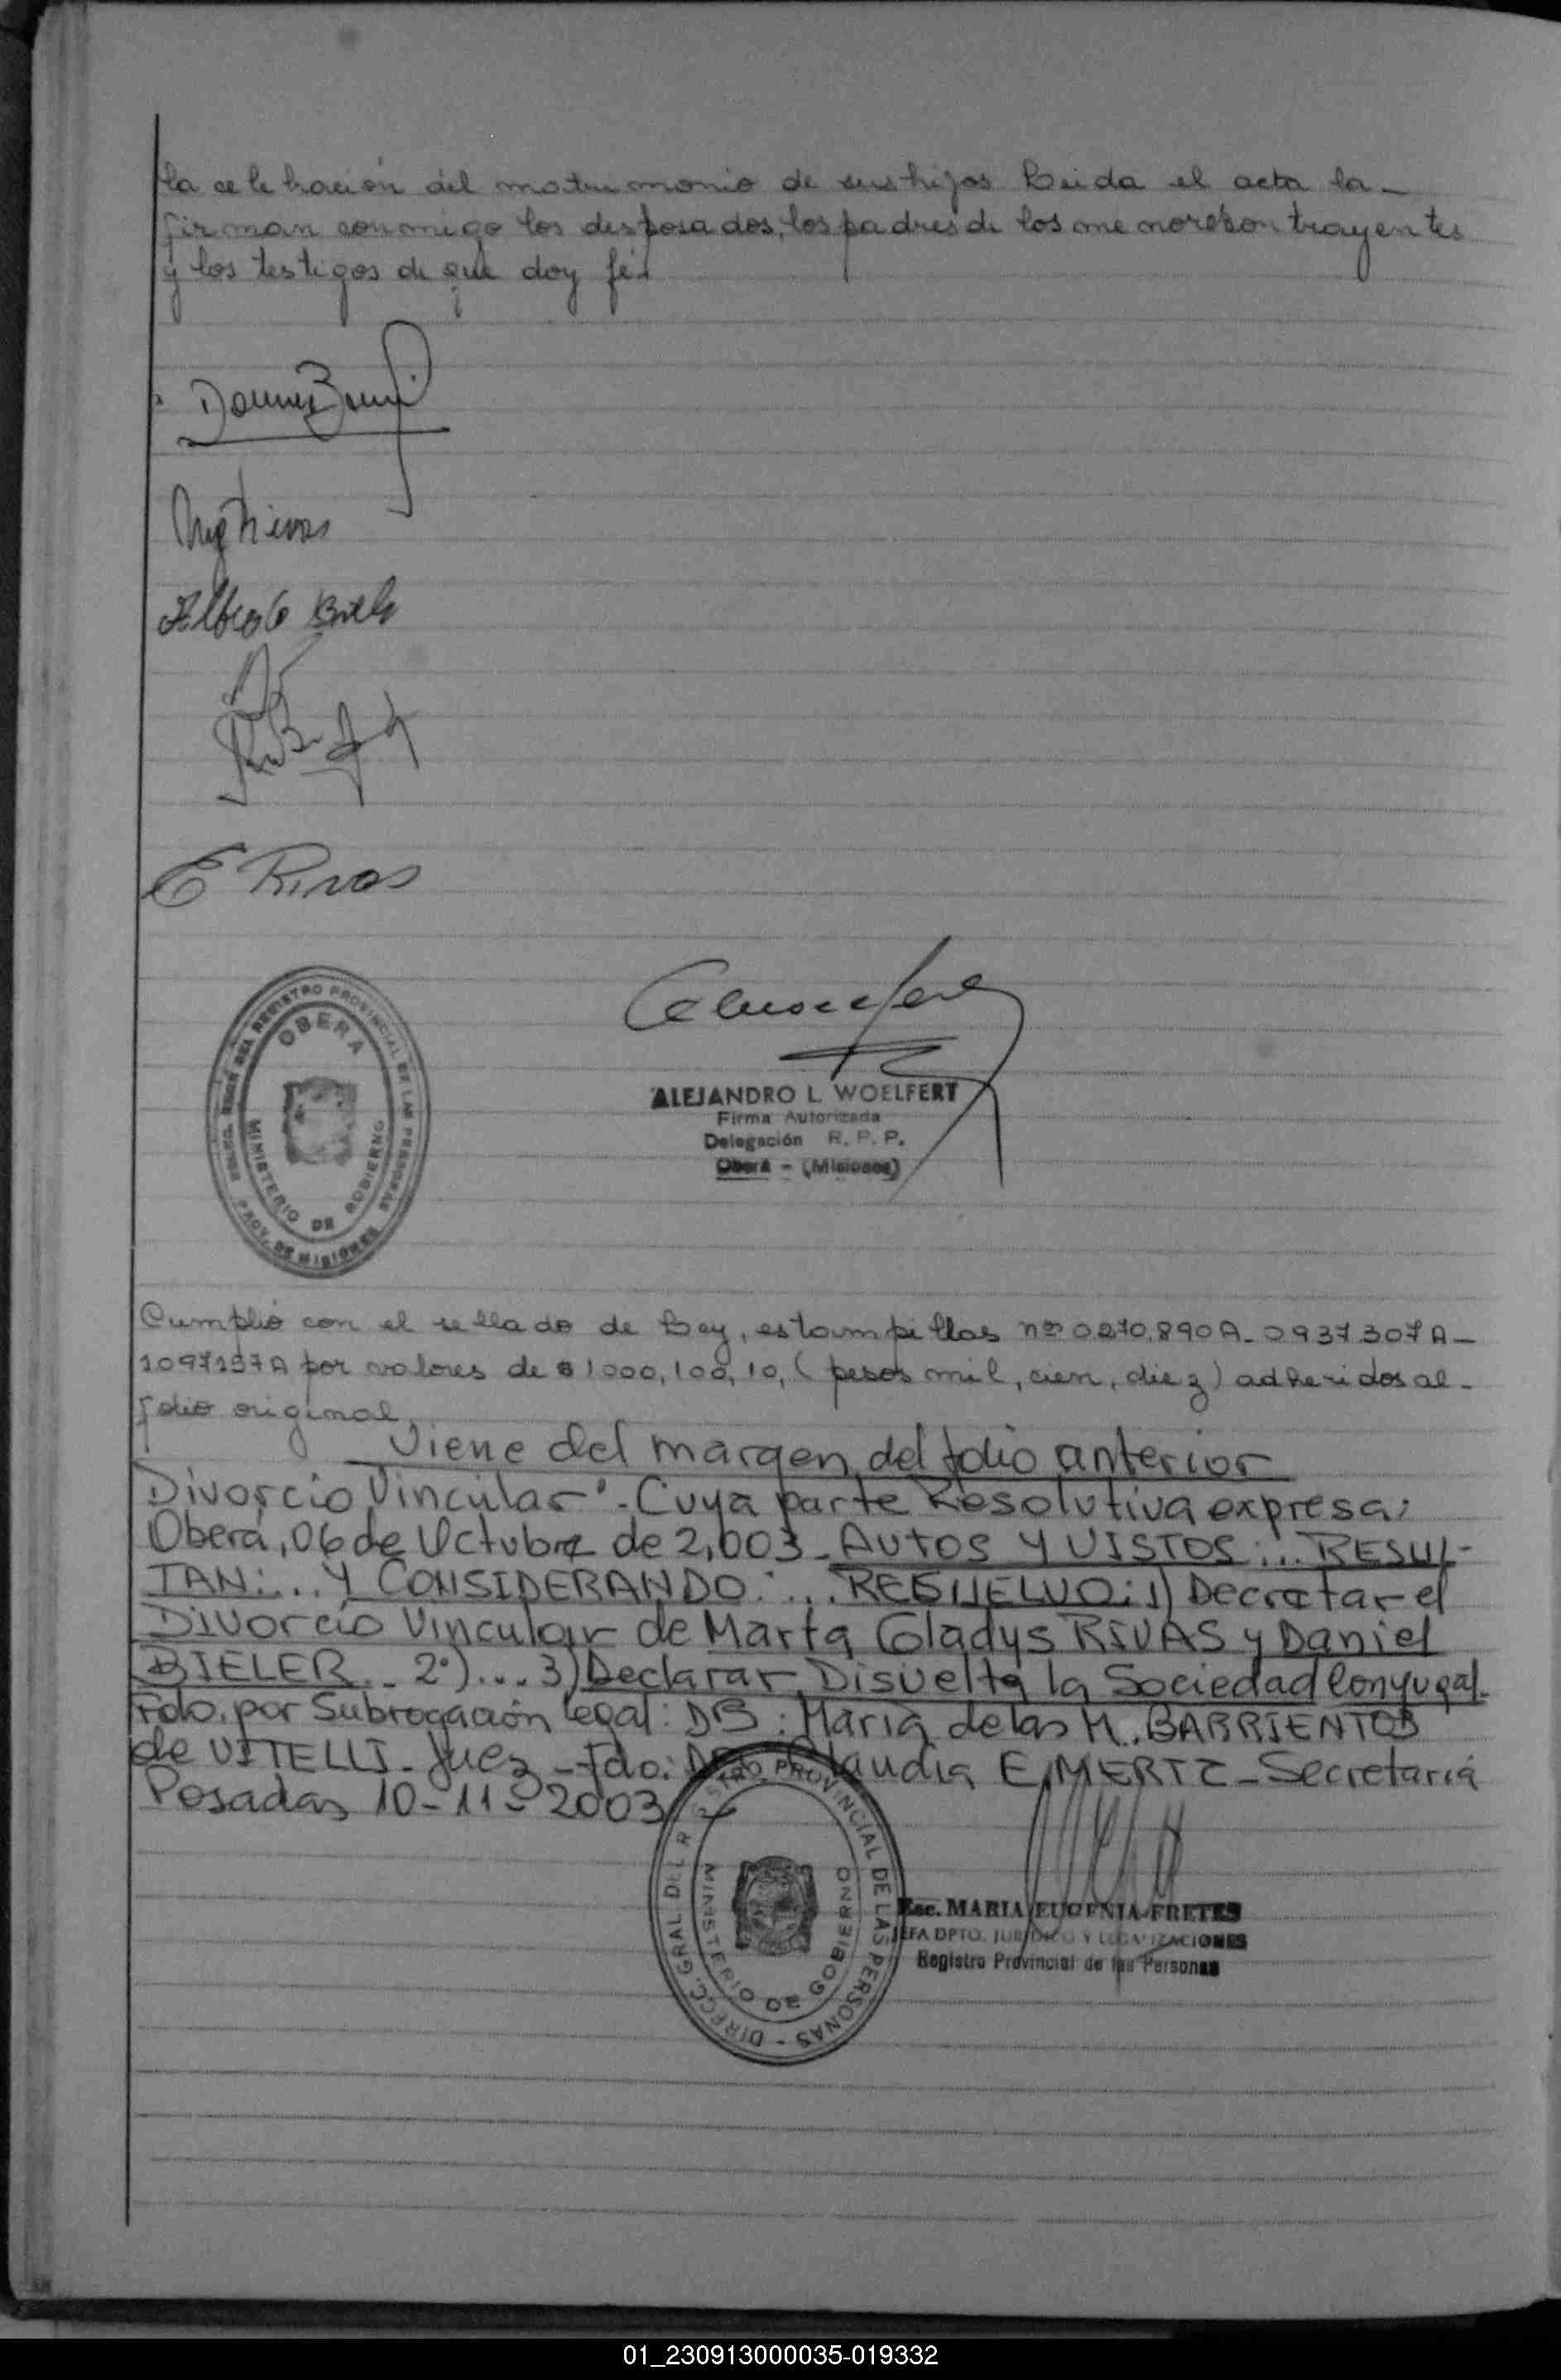 la celebración del matrimonio de sus hijos Leida el acta la_
firman conmigo los desposados, los padres de los menores contrayentes
y los testigos de que doy fé.
E Rivas
DIRECC. GRAL. DEL REGISTRO PROVINCIAL DE LAS PERSONAS
OBERA
MINISTERIO DE GOBIERNO
PROV. DE MISIONES
ALEJANDRO L. WOELFERT
Firma Autorizada
Delegación R. P. P.
Oberá - (Misiones)
Cumplió con el sellado de Ley, estampillas nos 0.270.890A_0937307A_
1097157A por valores de $ 1000, 100, 10, (pesos mil, cien, diez) adheridos al_
folio original.
Viene del margen del folio anterior
Divorcio Vincular".- Cuya parte Resolutiva expresa:
Oberá, 06 de Octubre de 2.003_ AUTOS Y VISTOS:... RESUL-
TAN:... Y CONSIDERANDO:... RESUELVO: 1) Decretar el
Divorcio Vincular de Marta Gladys RIVAS y Daniel
BIELER... 2º)... 3) Declarar Disuelta la Sociedad Conyugal.
Fdo. por Subrogación legal: DB: María de las M. BARRIENTOS
de VITELLI_ Juez_ Fdo: Claudia E. MERTZ_ Secretaria
Posadas 10-11-2003
DIRECC. GRAL. DEL REGISTRO PROVINCIAL DE LAS PERSONAS
MINISTERIO DE GOBIERNO
Esc. MARIA EUGENIA FRETES
JEFA DPTO. JURIDICO Y LEGALIZACIONES
Registro Provincial de las Personas
01_230913000035-019332